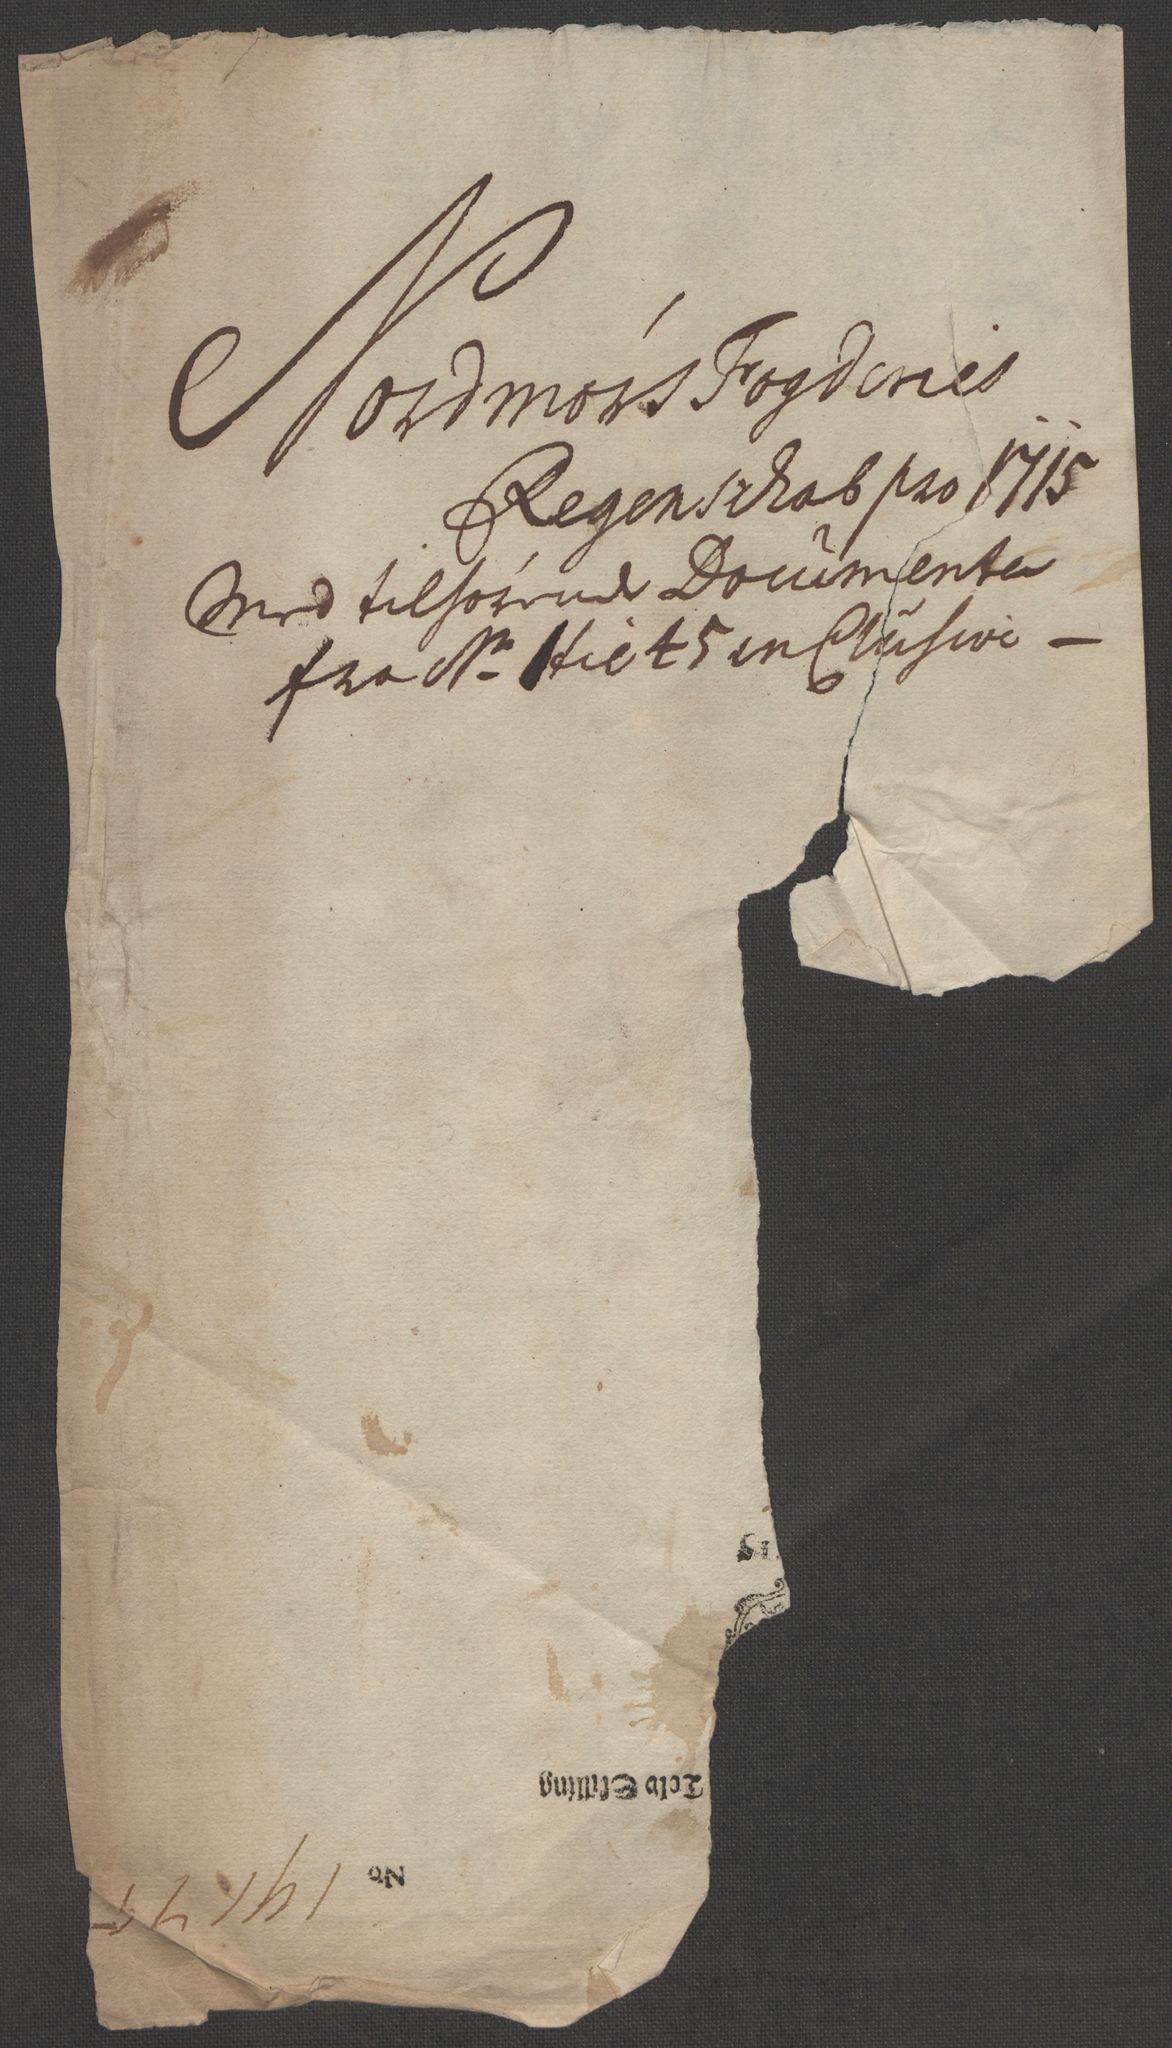 Nordmørs Fogderies
Regenschab pro 1715
Med tilhørende Documenter
fra No 1 til 45 inClusive —
Tolv Skilling
No